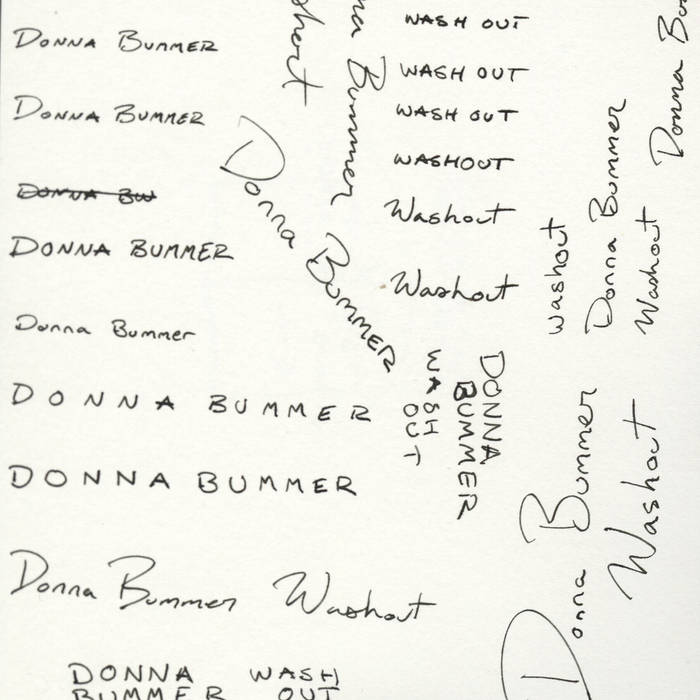 DONNA BUMMER
DONNA BUMMER
DONNA BUMMER
Donna Bummer
DONNA BUMMER
DONNA BUMMER
Donna Bummer Washout
DONNA WASH
BUMMER OUT
Donna BUMMER
Bummer
WASH OUT
WASH OUT
WASH OUT
WASHOUT
Washout
Washout
WASH
OUT
DONNA
BUMMER
washout
Donna Bummer
Washout
Donna
Donna Bummer
Washout